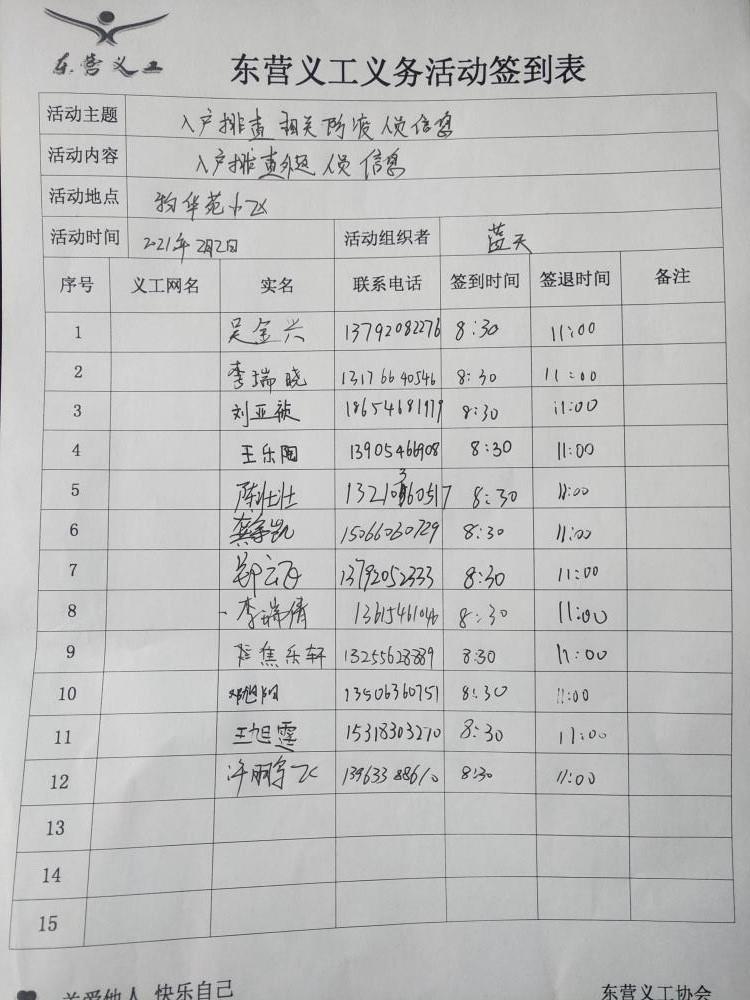 东营义工
东营义工义务活动签到表
活动主题 入户排查相关防疫人员信息
活动内容 入户排查外返人员信息
活动地点 物华苑小区
活动时间 2021年2月2日 活动组织者 蓝天
序号 义工网名 实名 联系电话 签到时间 签退时间 备注
1 吴金兴 13792082276 8:30 11:00
2 李瑞晓 13176640546 8:30 11:00
3 刘亚被 18654681979 8:30 11:00
4 王乐陶 13905466908 8:30 11:00
5 陈壮壮 8:30 11:00
6 15066030729 8:30 11:00
7 13792052333 8:30 11:00
8 李瑞倩 13615461046 8:30 11:00
9 焦乐轩 13255628889 8:30 11:00
10 邓旭阳 13506360751 8:30 11:00
11 王旭霆 15318303270 8:30 11:00
12 13963388610 8:30 11:00
13
14
15
关爱他人 快乐自己
东营义工协会